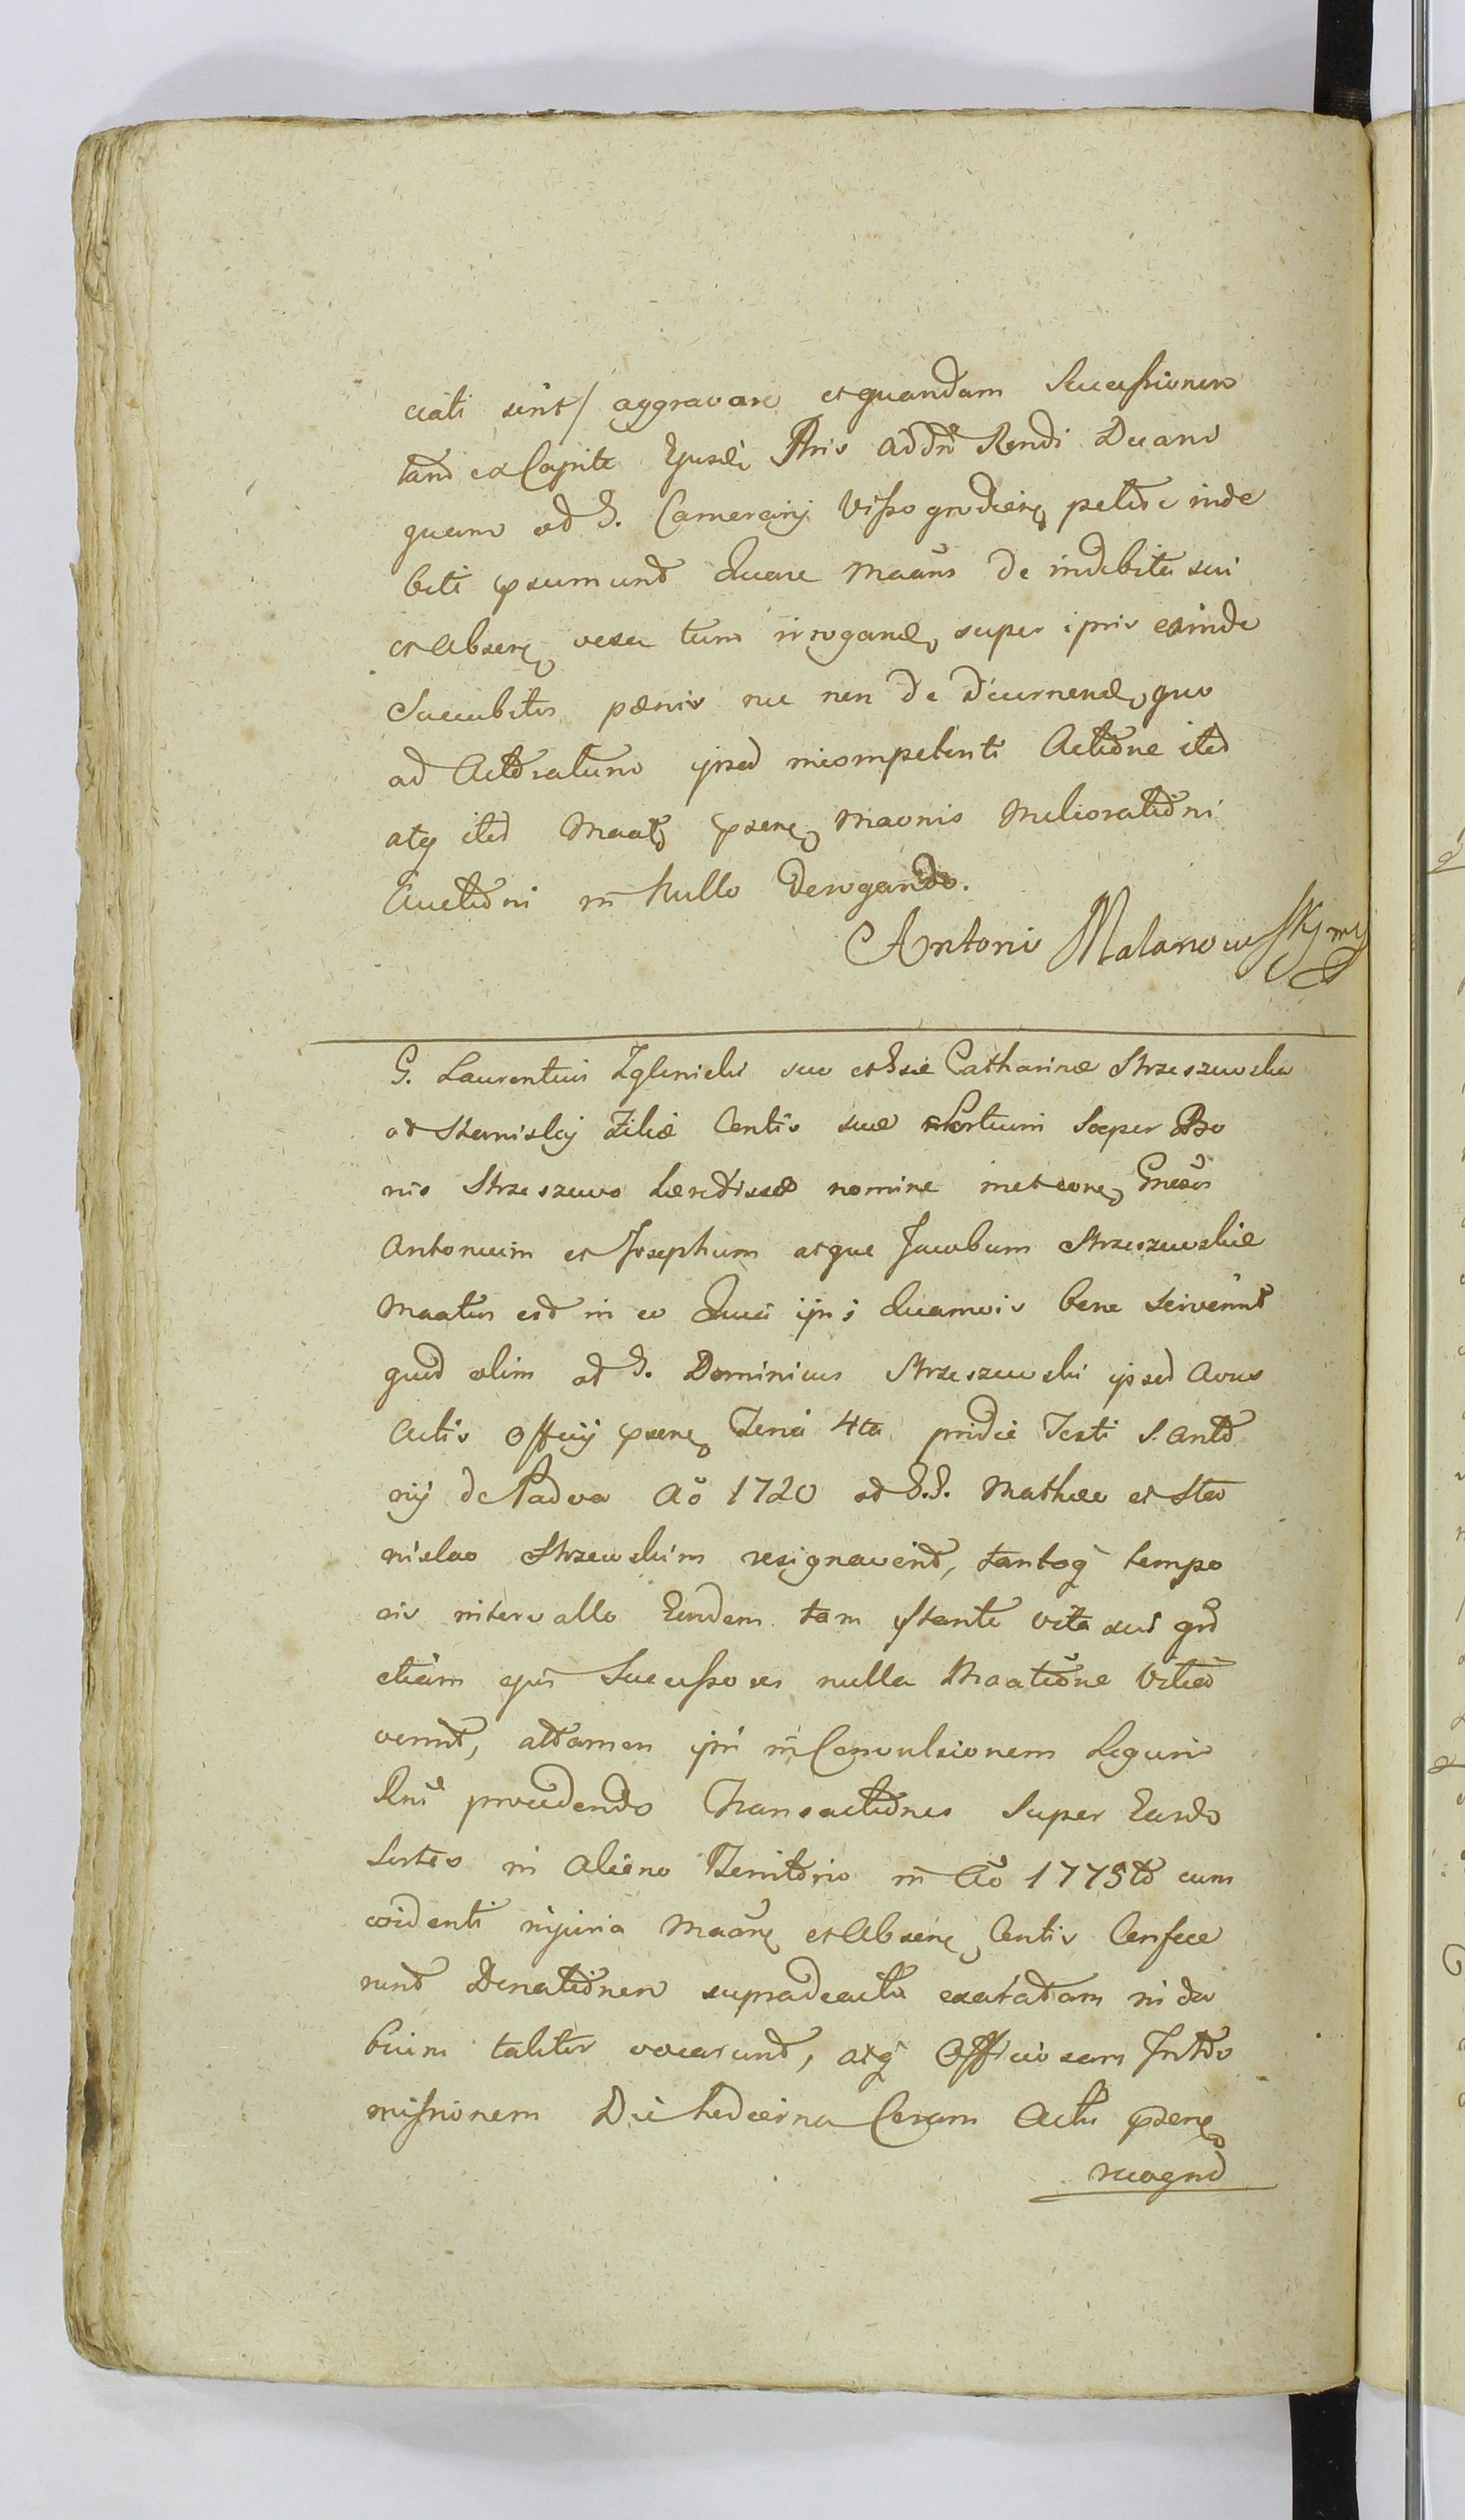 ciati sint/ aggravare et quandam Successionem
tand ex Capite Ejusdē Pris add̃ Rendi Decani
quam ad G. Camerarij Vissogrodien̄ petidē inde
biti p̱sumunt Quare Maãns de indebita sui
et Absen̄ vexa tum irrogand̄, super ipsis exinde
Succubitis pœnis nec non de d'ecernend̄, quo
ad Actoratum ipsed incompetenti Actione ited
atq̄ ited Maat̄ p̱sen̄ Maonis Meliorationi
Auctioni in Nullo Derogando.
Antoni Malanowski mp
G. Laurentius Zglenicki suo et Gsæ Catharinæ Strzeszewska
ad Stanislaj Filiæ Contis suæ Sortium super Bo
nis Strzeszewo Hæredissæ nomine
Antonium et Josephum atque Jacobum Strzeszewskie
Maatus est in eo Quia ipsi Quamvis bene sciverint
quod olim ad G. Dominicus Strzeszewski ipsed Avus
Actis Officij p̱sen̄ Feria 4ta pridie Festi S. Anto
nij de Padva Aõ 1720 ad G.G. Mathæo et Sta
nislao Strzewskim resignaverit, tantoq̄ tempo
ris intervallo Eundem tam p̱stante vita sua qũ
etiam ejus Successores nulla Maatione Vitia
verint, attamen ipsi in Convulsionem Legum
Rni procedendo Transactiones super Easdo
Sortes in alieno Territorio in Aõ 1775to cum
evidenti injuria Maan̄ et Absen̄ Contis Confece
runt Donationem supradeacta exaratam in du
bium taliter vocarunt, atq̄ Officiosam Intro
missionem Die hodierna Coram Actis p̱sen̄
recognō